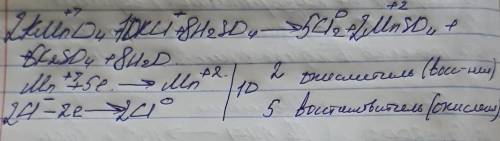 +7 -1 0 +2
2KMnO4 + 10KCl + 8H2SO4 → 5Cl2 + 2MnSO4 +
6K2SO4 + 8H2O
Mn+7 + 5e → Mn+2 | 10 2 окислитель (восс-ние)
2Cl- - 2e → 2Cl0 5 восстановитель (окисление)